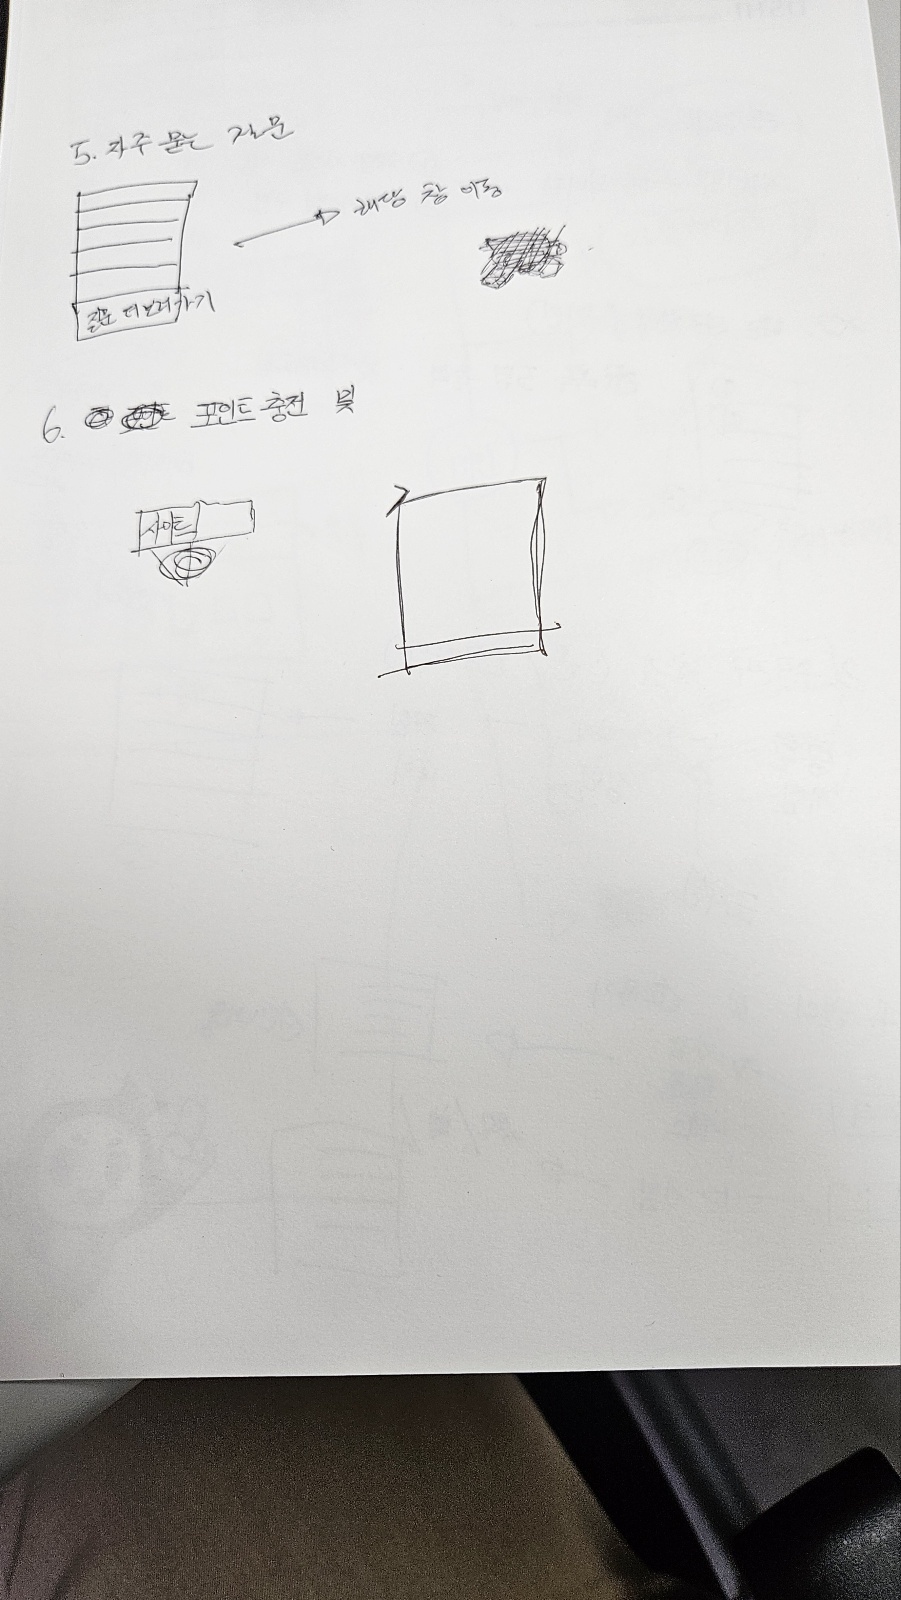 5. 자주 묻는 질문
해당 창 이동
질문 더보러가기
6. 포인트 충전 및
사이트